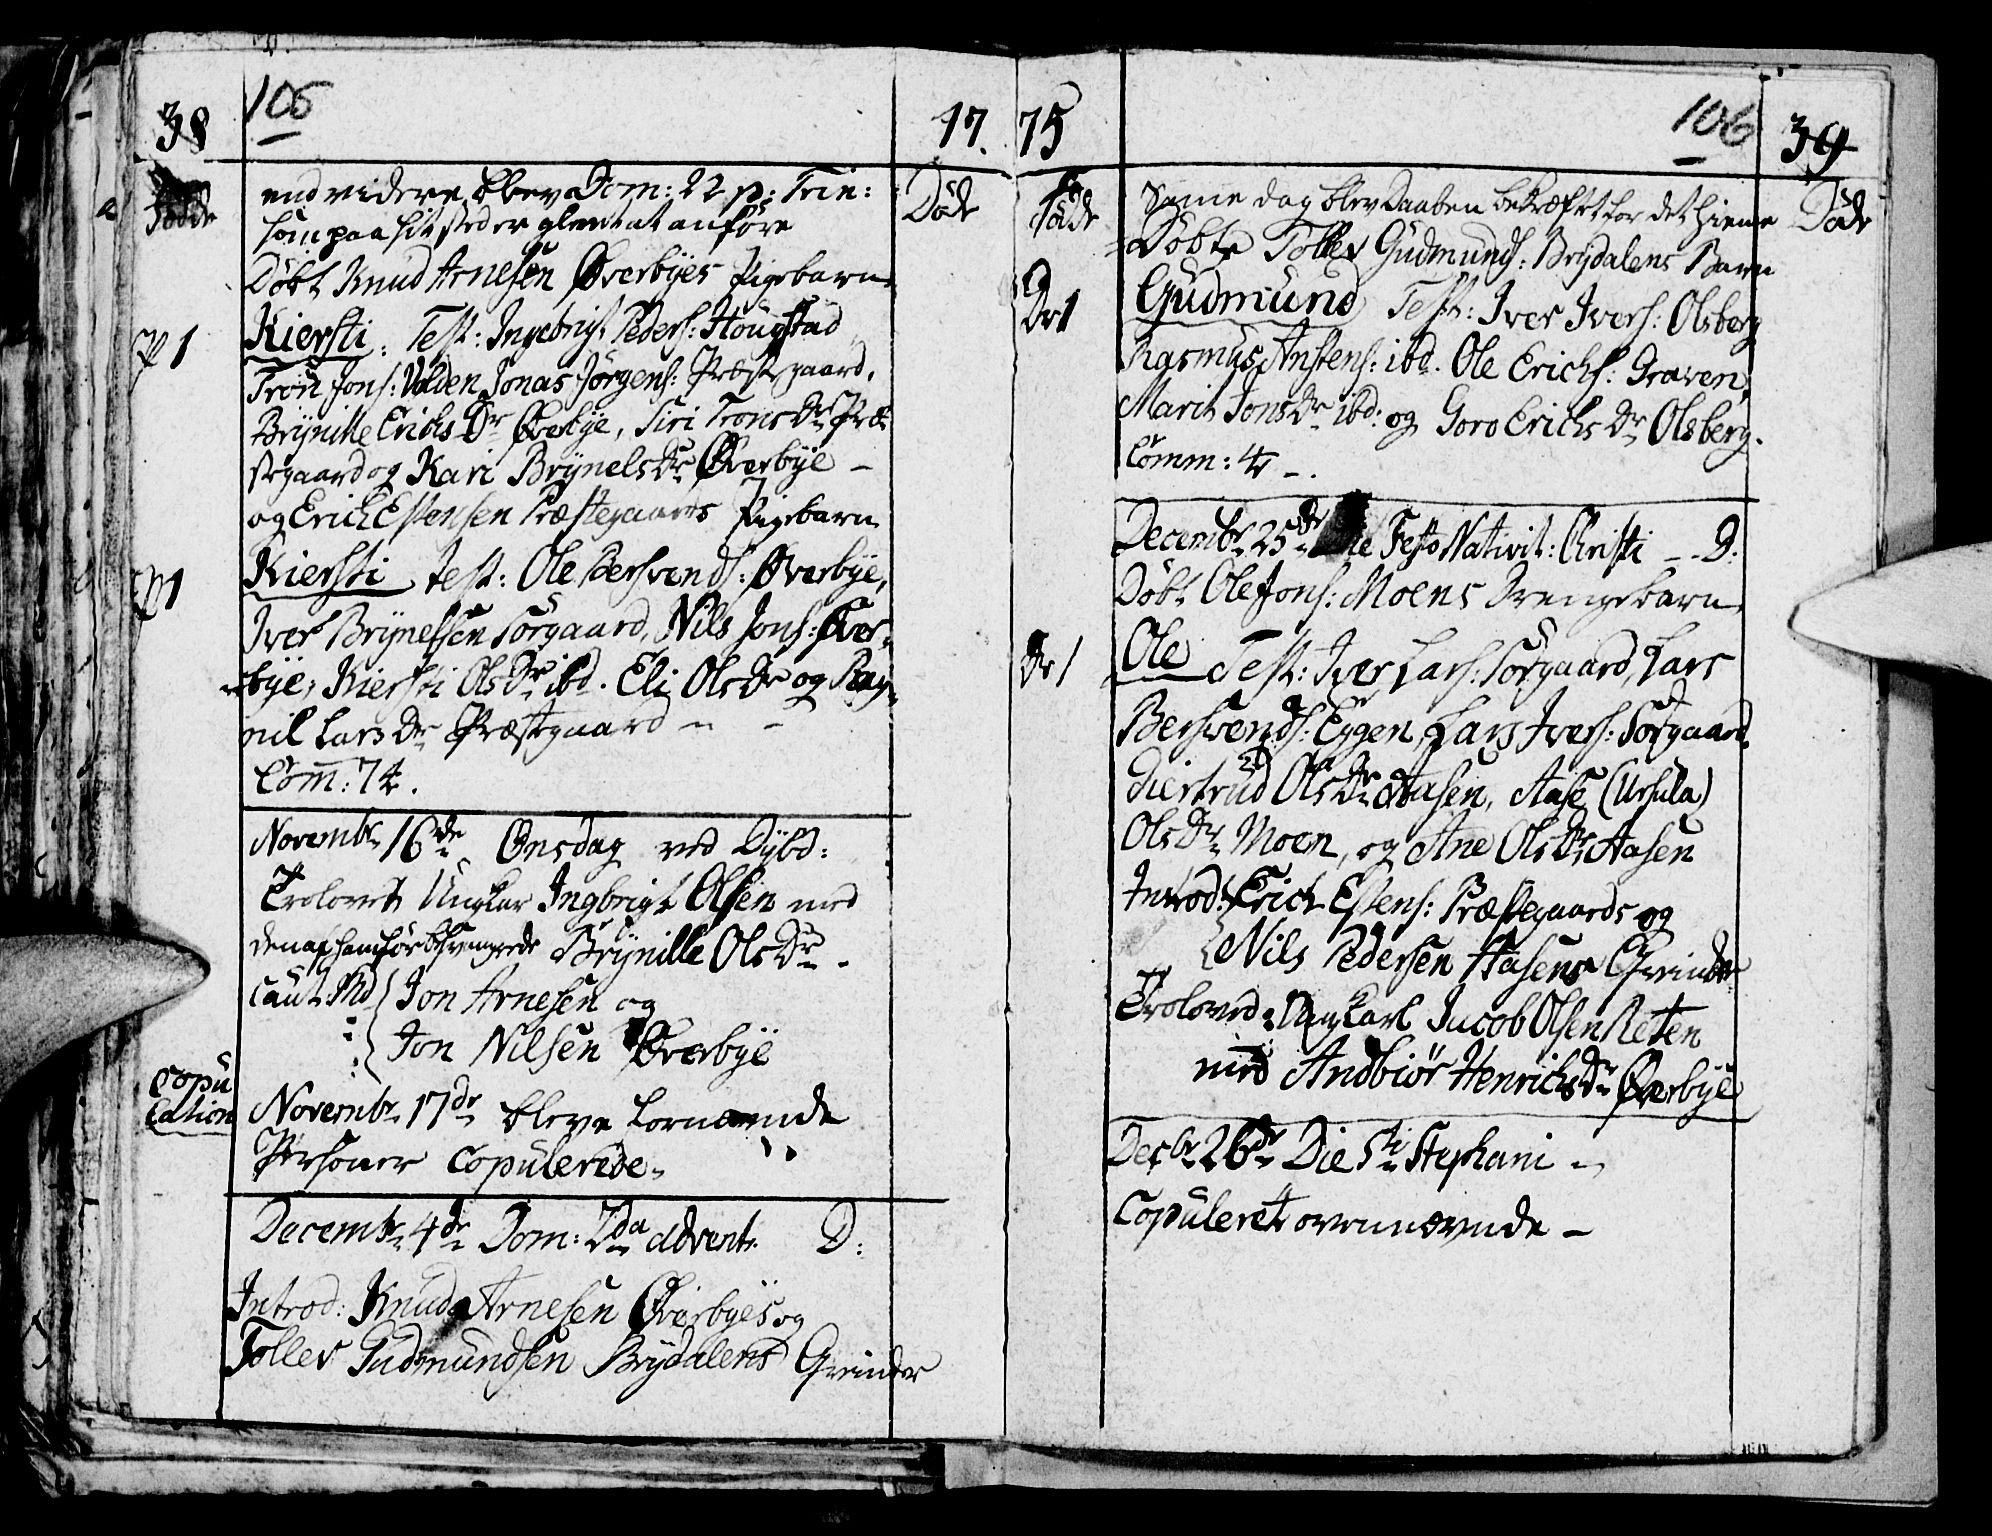 38 105 17.
Födde Döde
endvidere blev Dom: 22 p: Trin:
som paa sit sted er glemt at anföre
Döbt Knud Arnesen Øverbÿes Pigebarn
P 1 Kiersti. Test: Ingebrigt Peders: Hougstad
Tron Jons: Volden Jonas Jörgens: Præstegaard,
Brÿnille Erichs Dr Øverbÿe, Siri Trons Dr Præ-
stegaard og Kari Brÿnels Dr Øverbÿe –
og Erich Estensen Præstegaards Pigebarn
P 1 Kiersti Test: Ole Bersvends: Øverbÿe,
Iver Brÿnelsen Sörgaard, Nils Jons: Øver-
bÿe, Kiersti Ols Dr ibd. Eli Ols Dr og Rag-
nil Lars Dr Præstegaard – –
Com: 74.
Novembr 16de Onsdag ved Dÿbd:
Trolovet Ungkar Ingbrigt Olsen med
den af ham för besvangrede Brÿnille Ols Dr.
Caut: Md { Jon Arnesen og
Jon Nilsen Øverbÿe
Copu
lation
Novembr 17de bleve bornævnde
Personer Copulerede.
Decembr 4de Dom: 2da Advent. D:
Introd: Knud Arnesen Øverbÿes og
Tollev Gudmundsen Brÿdalens Qvinder
75 106 39
Födde Döde
Samme dag blev Daaben bekræftet for det hieme
Döbte Tollev Gudmunds: Brÿdalens Barn
Dr 1 Gudmund Test: Iver Ivers: Olsberg
Rasmus Anstens: ibd. Ole Erichs: Graven,
Marit Jons Dr ibd: og Goro Erichs Dr Olsberg.
Comm: 4 –.
Decembr 25de Festo Nativit: Christi – D:
Döbt Ole Jons: Moens Drengebarn
Dr 1 Ole Test: Iver Lars: Sörgaard, Lars
Bersvends: Eggen, Lars Ivers: Sörgaard
Giertrud Ols Dr Aasen, Aase (Ursula)
Ols Dr Moen, og Ane Ols Dr Aasen
Introd: { Erich Estens: Præstegaards og
Nils Pedersen Aasens Qvinder
Troloved: Ungkarl Jacob Olsen Reten
med Andbiör Henrichs Dr Øverbÿe
Decbr 26de Die Sti Stephani –
Copuleret ovennævnde –